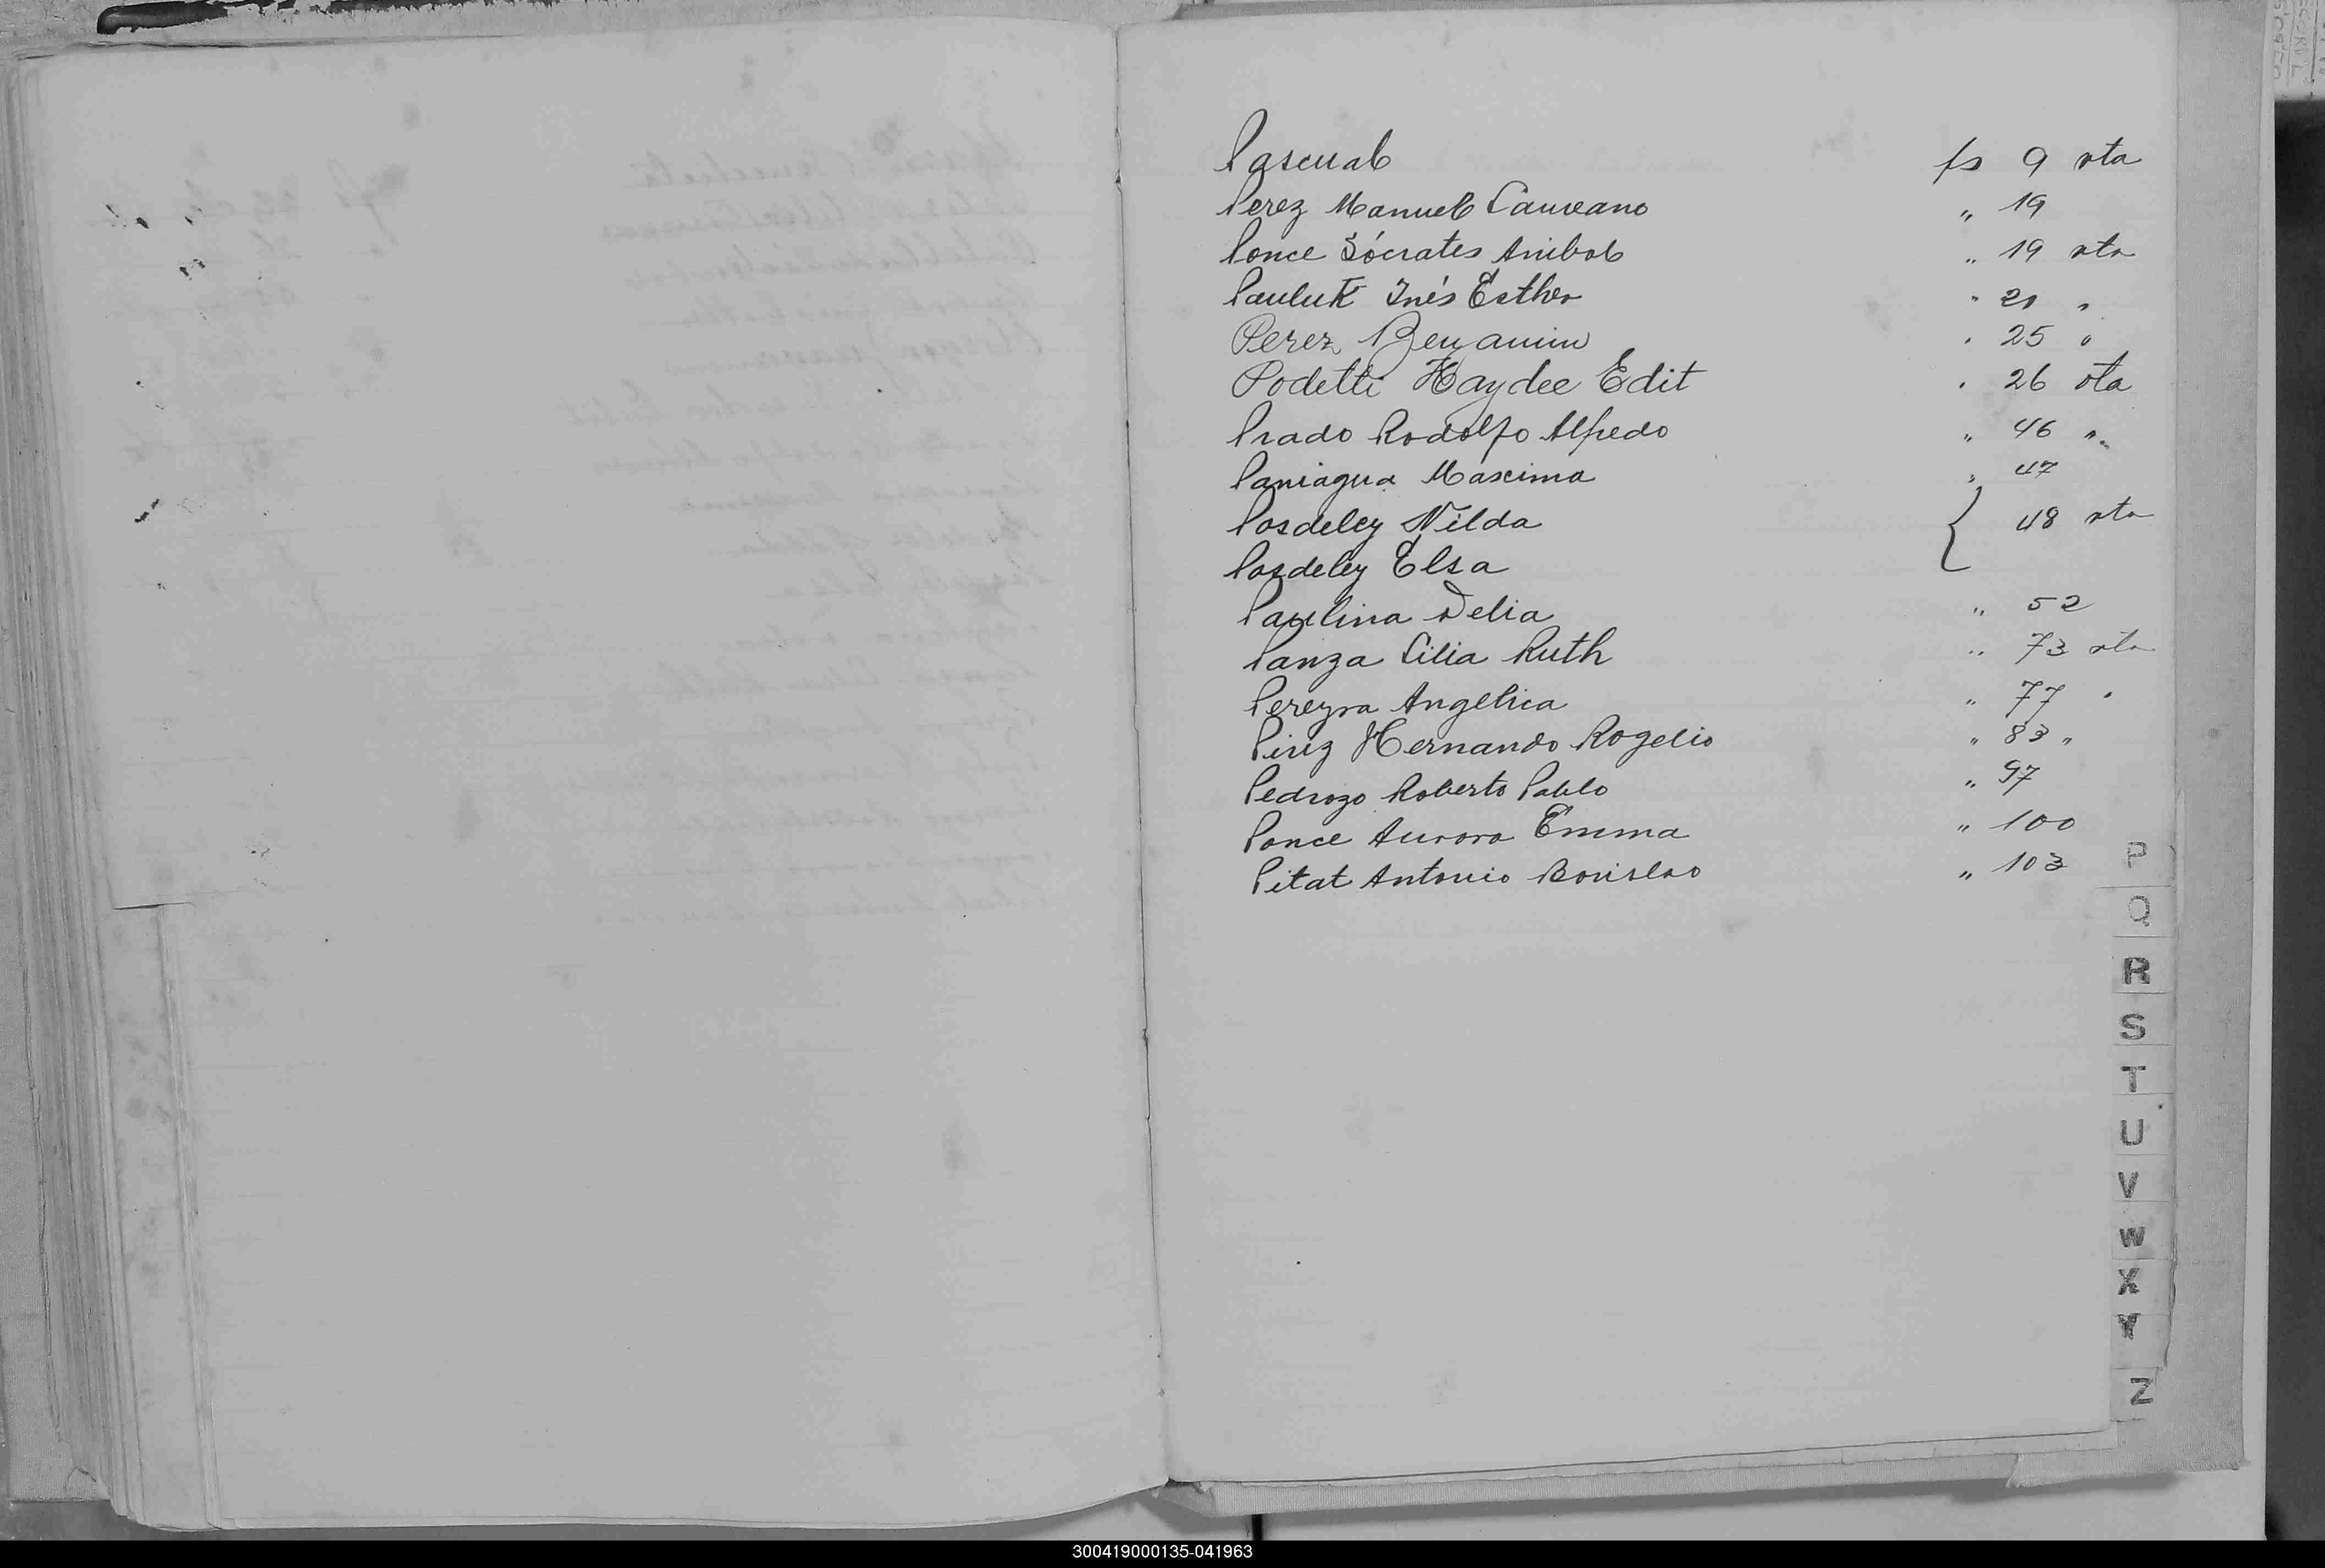 Pascual fs 9 vta
Perez Manuel Laureano " 19
Ponce Sócrates Anibal " 19 vta
Pauluk Inés Esther " 21 "
Perez Benjamin " 25 "
Podetti Haydee Edit " 26 vta
Prado Rodolfo Alfredo " 46 "
Paniagua Maxima " 47
Posdeley Nilda { 48 vta
Posdeley Elsa
Paulina Delia " 52
Panza Lilia Ruth " 73 vta
Pereyra Angelica " 77 "
Piriz Hernando Rogelio " 83 "
Pedrozo Roberto Pablo " 97
Ponce Aurora Emma " 100
Pitat Antonio Borislao " 103
P
Q
R
S
T
U
V
W
X
Y
Z
300419000135-041963